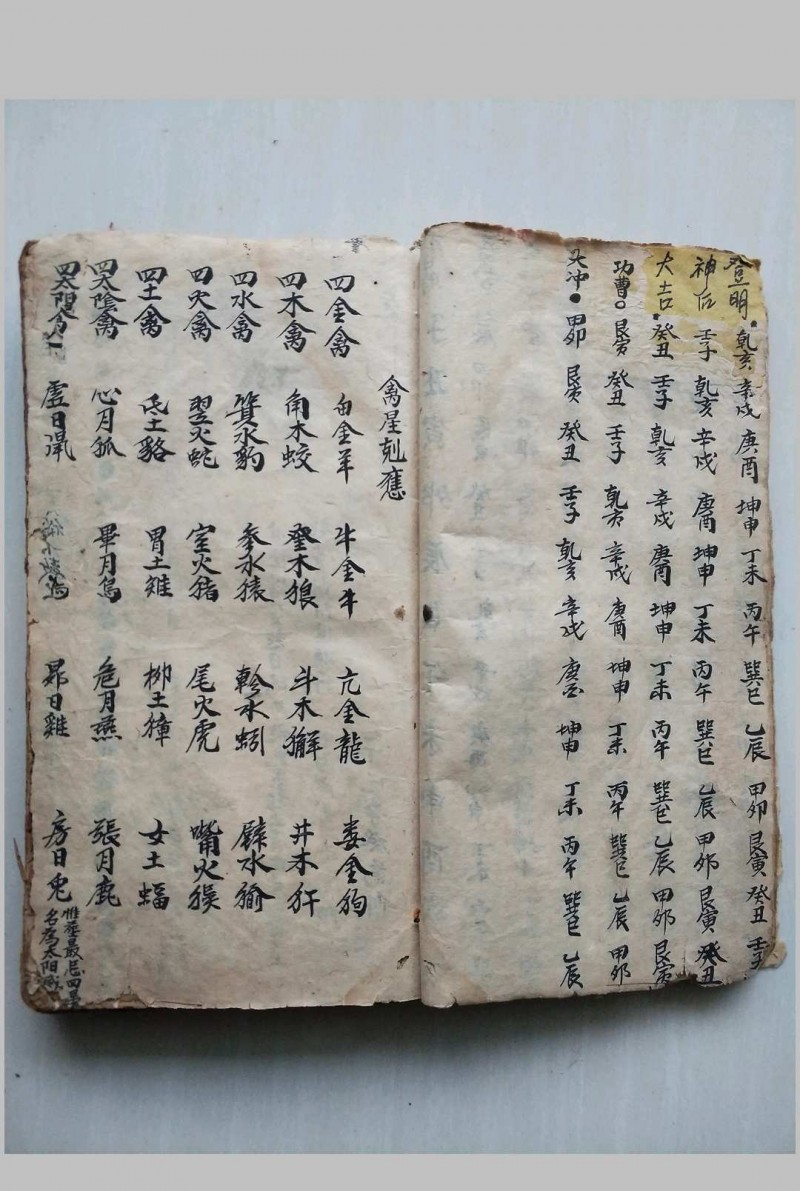 登明 乾亥 辛戌 庚酉 坤申 丁未 丙午 巽巳 乙辰 甲卯 艮寅 癸丑 壬子
神后 壬子 乾亥 辛戌 庚酉 坤申 丁未 丙午 巽巳 乙辰 甲卯 艮寅 癸丑
大吉 癸丑 壬子 乾亥 辛戌 庚酉 坤申 丁未 丙午 巽巳 乙辰 甲卯 艮寅
功曹 艮寅 癸丑 壬子 乾亥 辛戌 庚酉 坤申 丁未 丙午 巽巳 乙辰 甲卯
太冲 甲卯 艮寅 癸丑 壬子 乾亥 辛戌 庚酉 坤申 丁未 丙午 巽巳 乙辰
禽星剋應
四金禽 白金羊 牛金牛 亢金龍 婁金狗
四木禽 角木蛟 奎木狼 斗木獬 井木犴
四水禽 箕水豹 参水猿 軫水蚓 壁水㺄
四火禽 翌火蛇 室火猪 尾火虎 嘴火猴
四土禽 氐土貉 胃土雉 柳土獐 女土蝠
四太陰禽 心月狐 畢月烏 危月燕 張月鹿
四太陽禽 虚日鼠 昴日雞 房日兔
惟葬最忌四
名為太阳